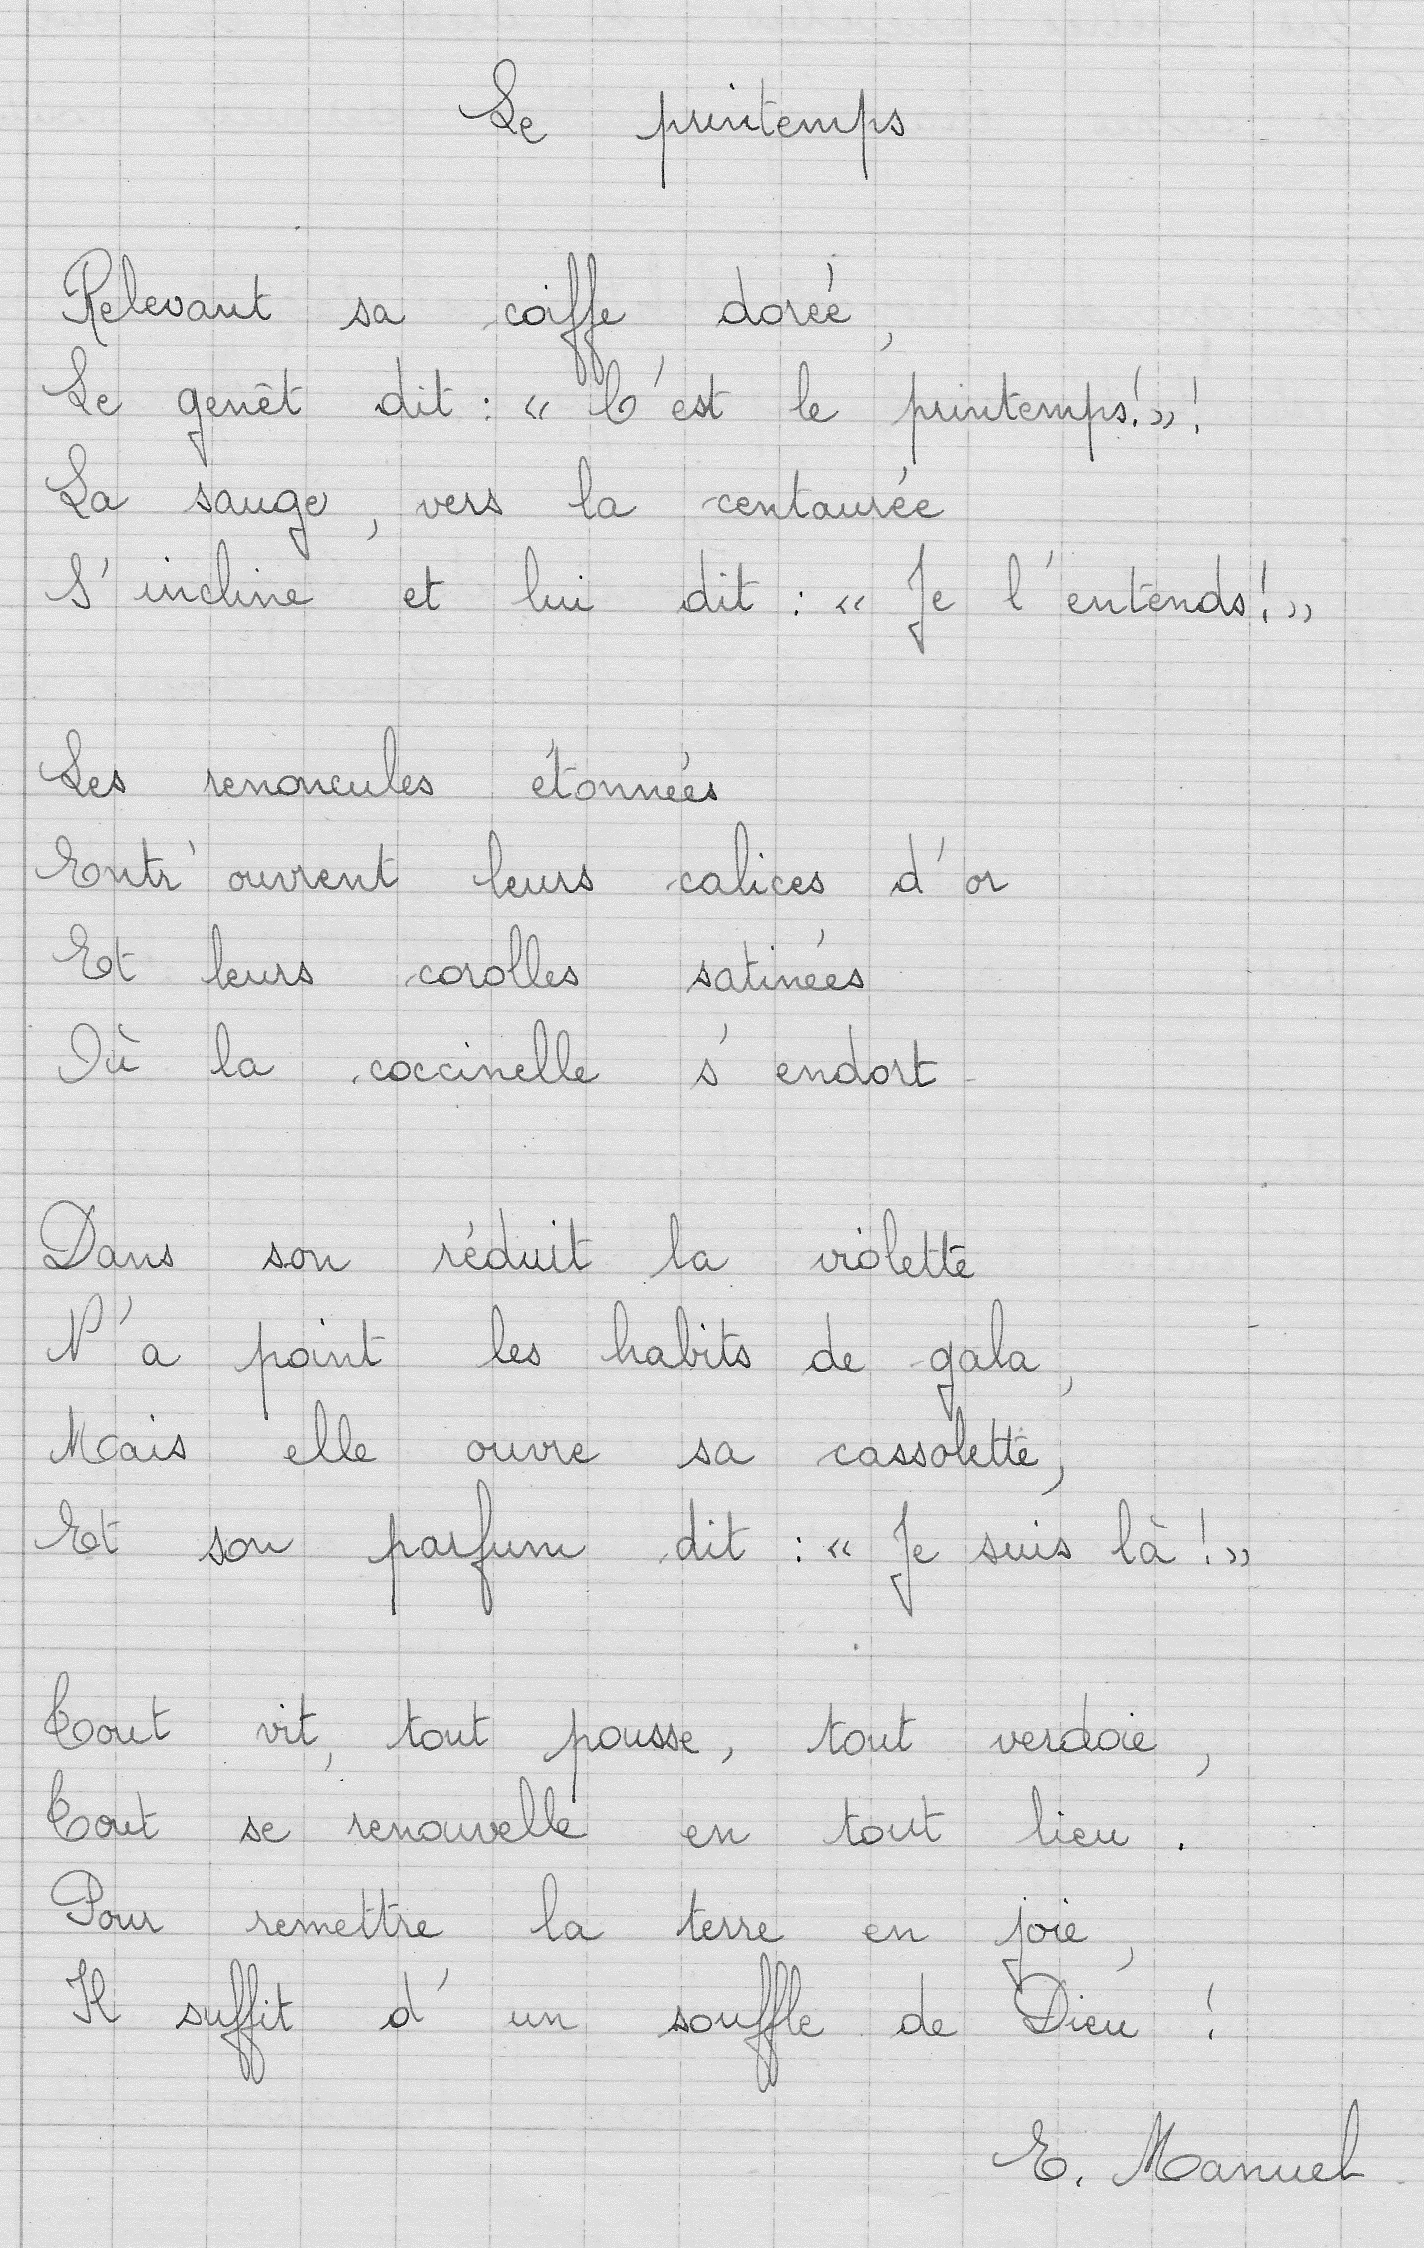 Le printemps
Relevant sa coiffe dorée,
Le genêt dit : « C'est le printemps! » !
La sauge, vers la centaurée
S'incline et lui dit : « Je l'entends! »
Les renoncules étonnées
Entr'ouvrent leurs calices d'or
Et leurs corolles satinées
Où la coccinelle s'endort
Dans son réduit la violette
N'a point les habits de gala,
Mais elle ouvre sa cassolette,
Et son parfum dit : « Je suis là ! »
Tout vit, tout pousse, tout verdoie,
Tout se renouvelle en tout lieu.
Pour remettre la terre en joie,
Il suffit d'un souffle de Dieu !
E. Manuel